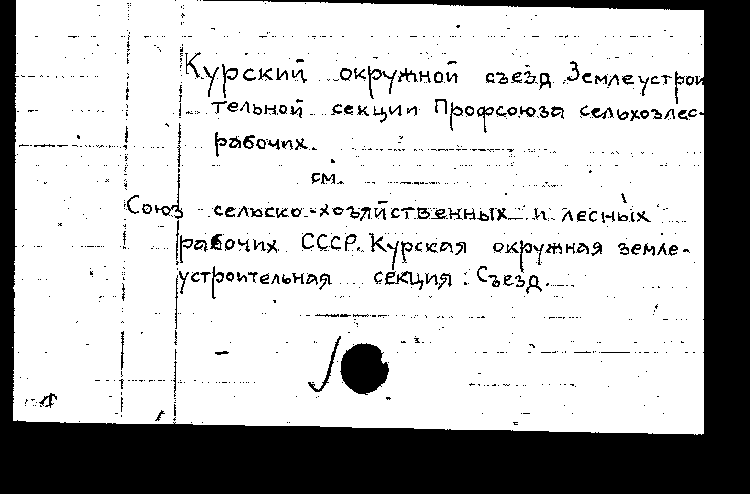 Курский окружной съезд Землеустрои
тельной секции Профсоюза сельхозлес-
рабочих.
см.
Союз сельско-хозяйственных и лесных
рабочих СССР. Курская окружная земле-
устроительная секция. Съезд.